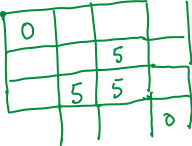 0
5
5 5
0